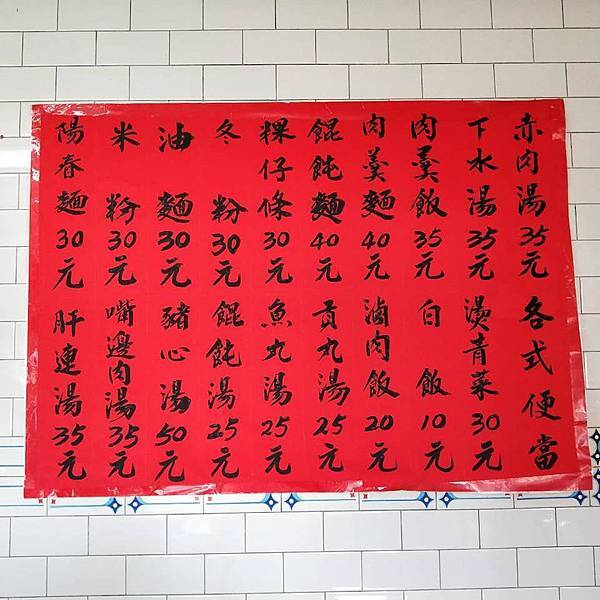 赤肉湯35元
各式便當
下水湯35元
燙青菜30元
肉羹飯35元
白飯10元
肉羹麵40元
滷肉飯20元
餛飩麵40元
貢丸湯25元
粿仔條30元
魚丸湯25元
冬粉30元
餛飩湯25元
油麵30元
豬心湯50元
米粉30元
嘴邊肉湯35元
陽春麵30元
肝連湯35元